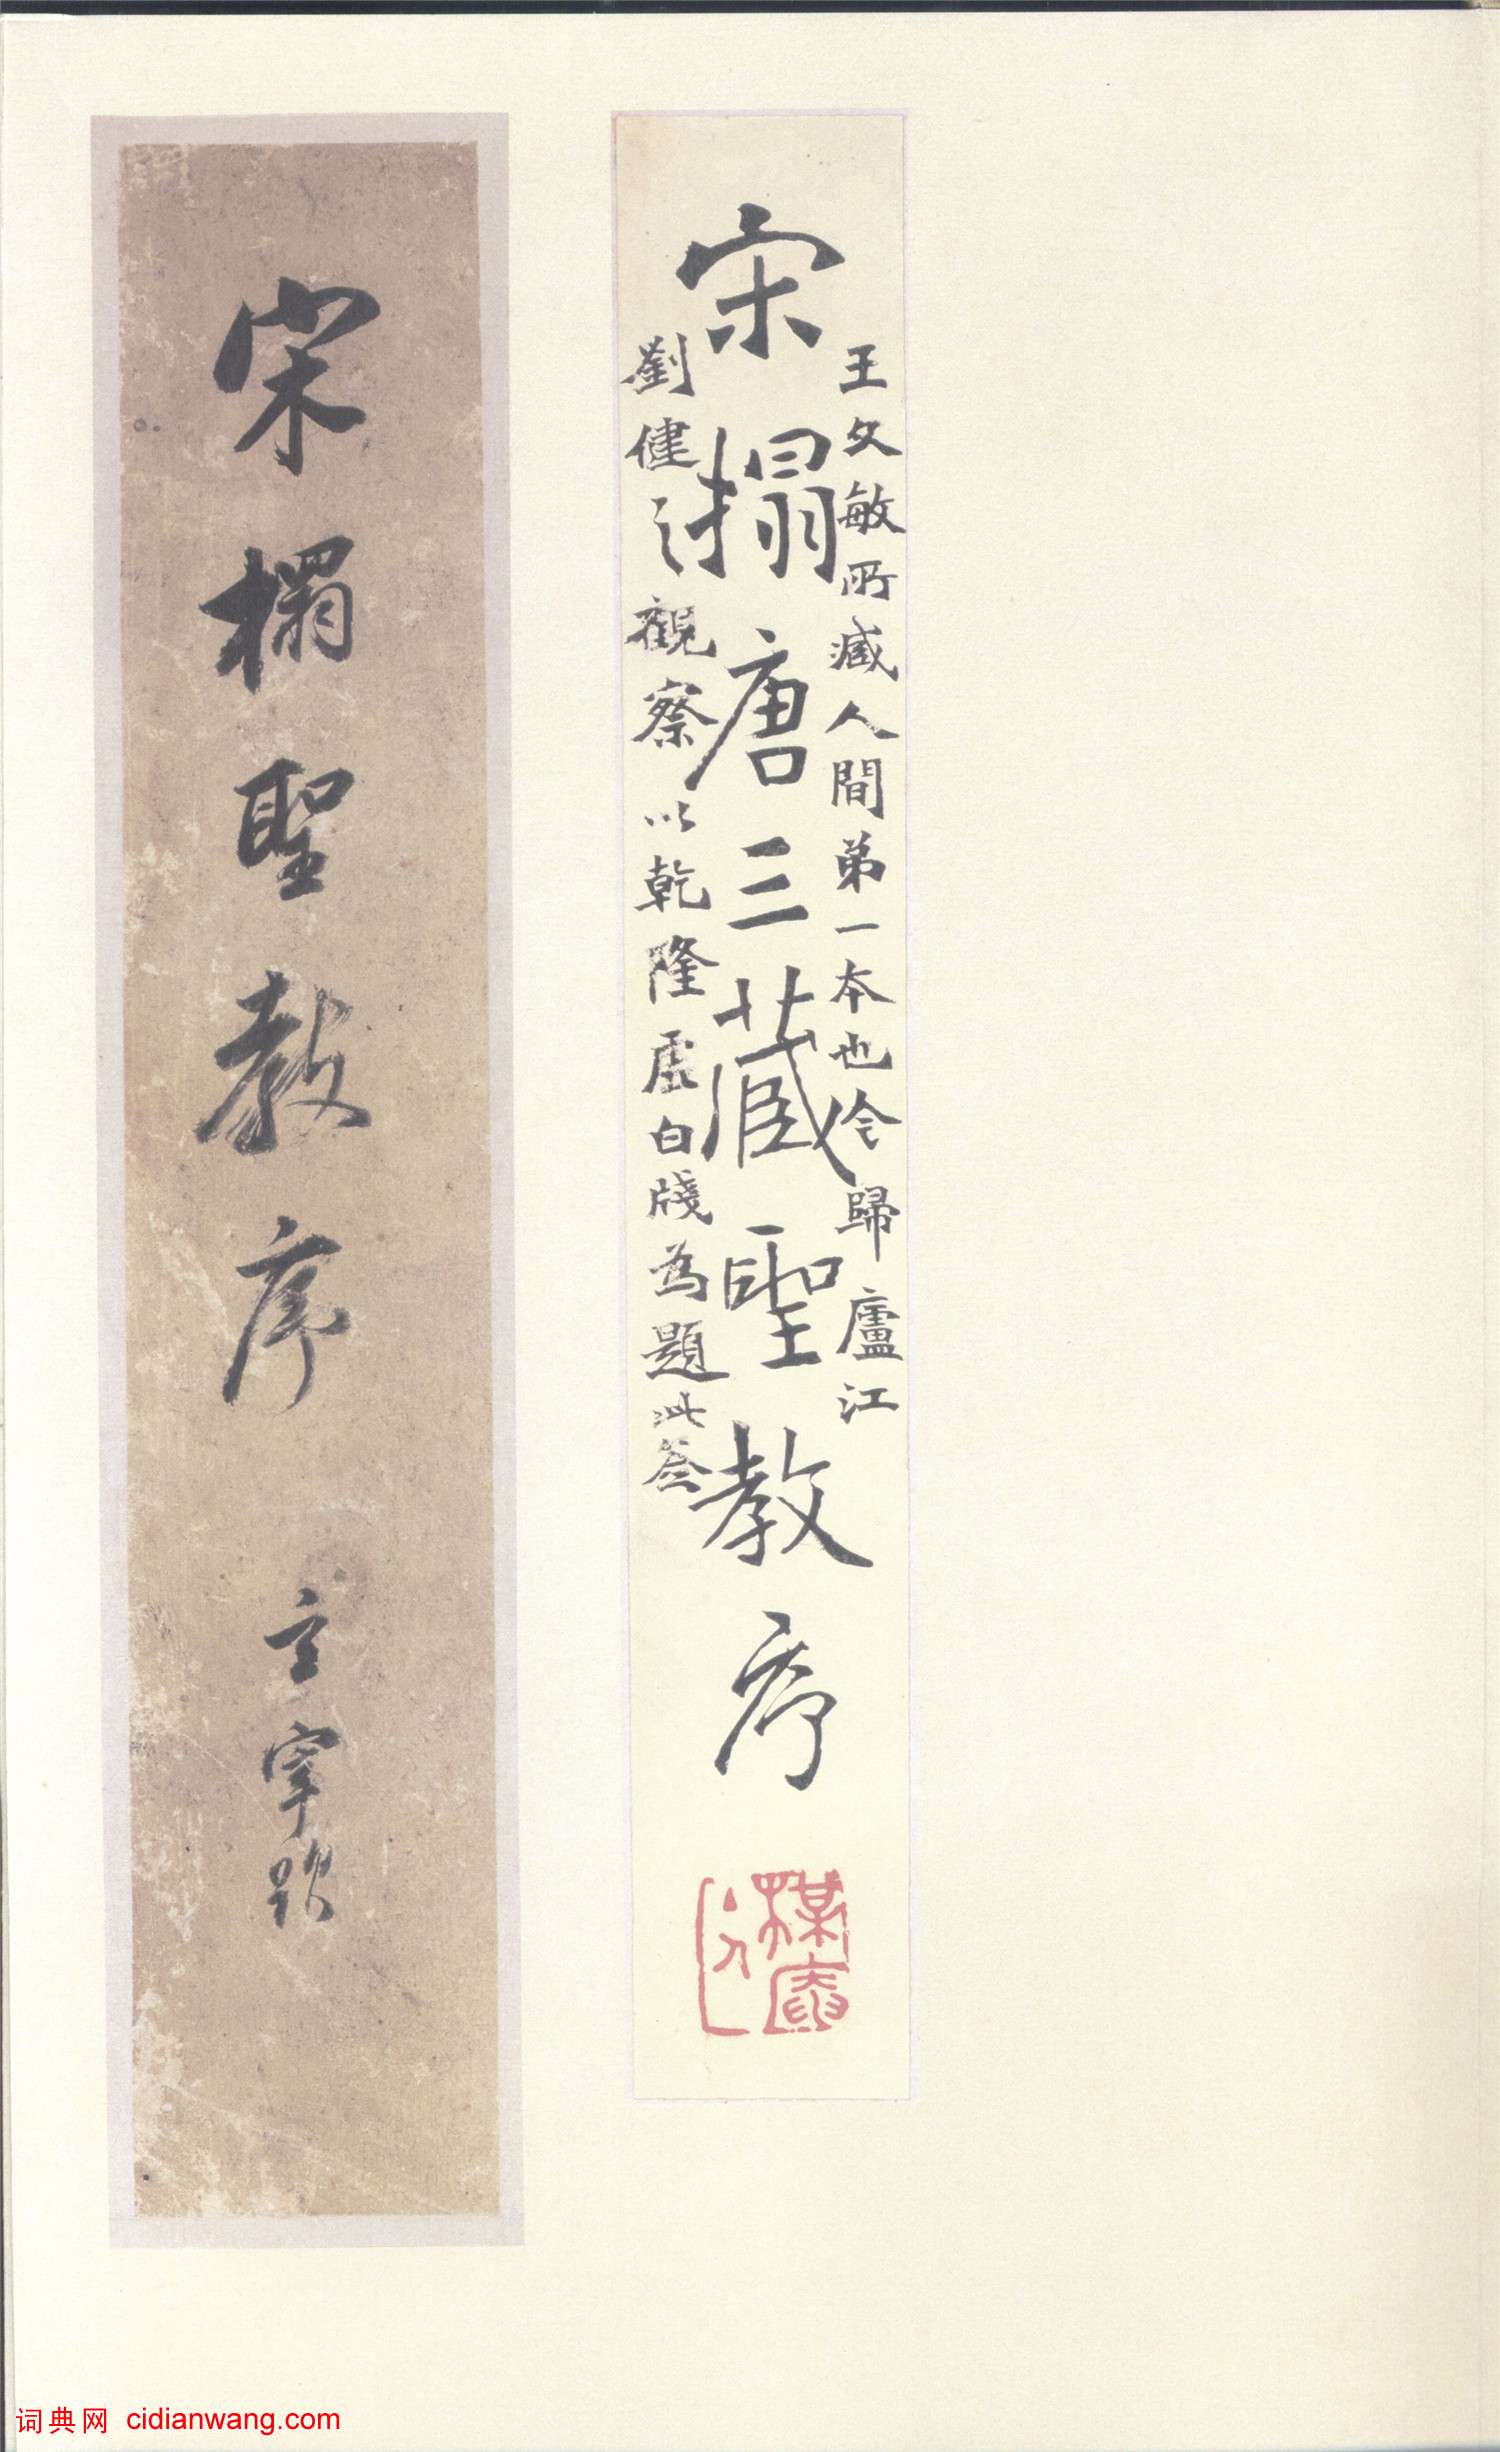 王文敏所臧人間弟一本也今歸廬江
宋搨唐三藏聖教序
劉健之觀察以乾隆虛白牋為題此簽
宋榻聖教序
玄宰題
词典网 cidianwang.com